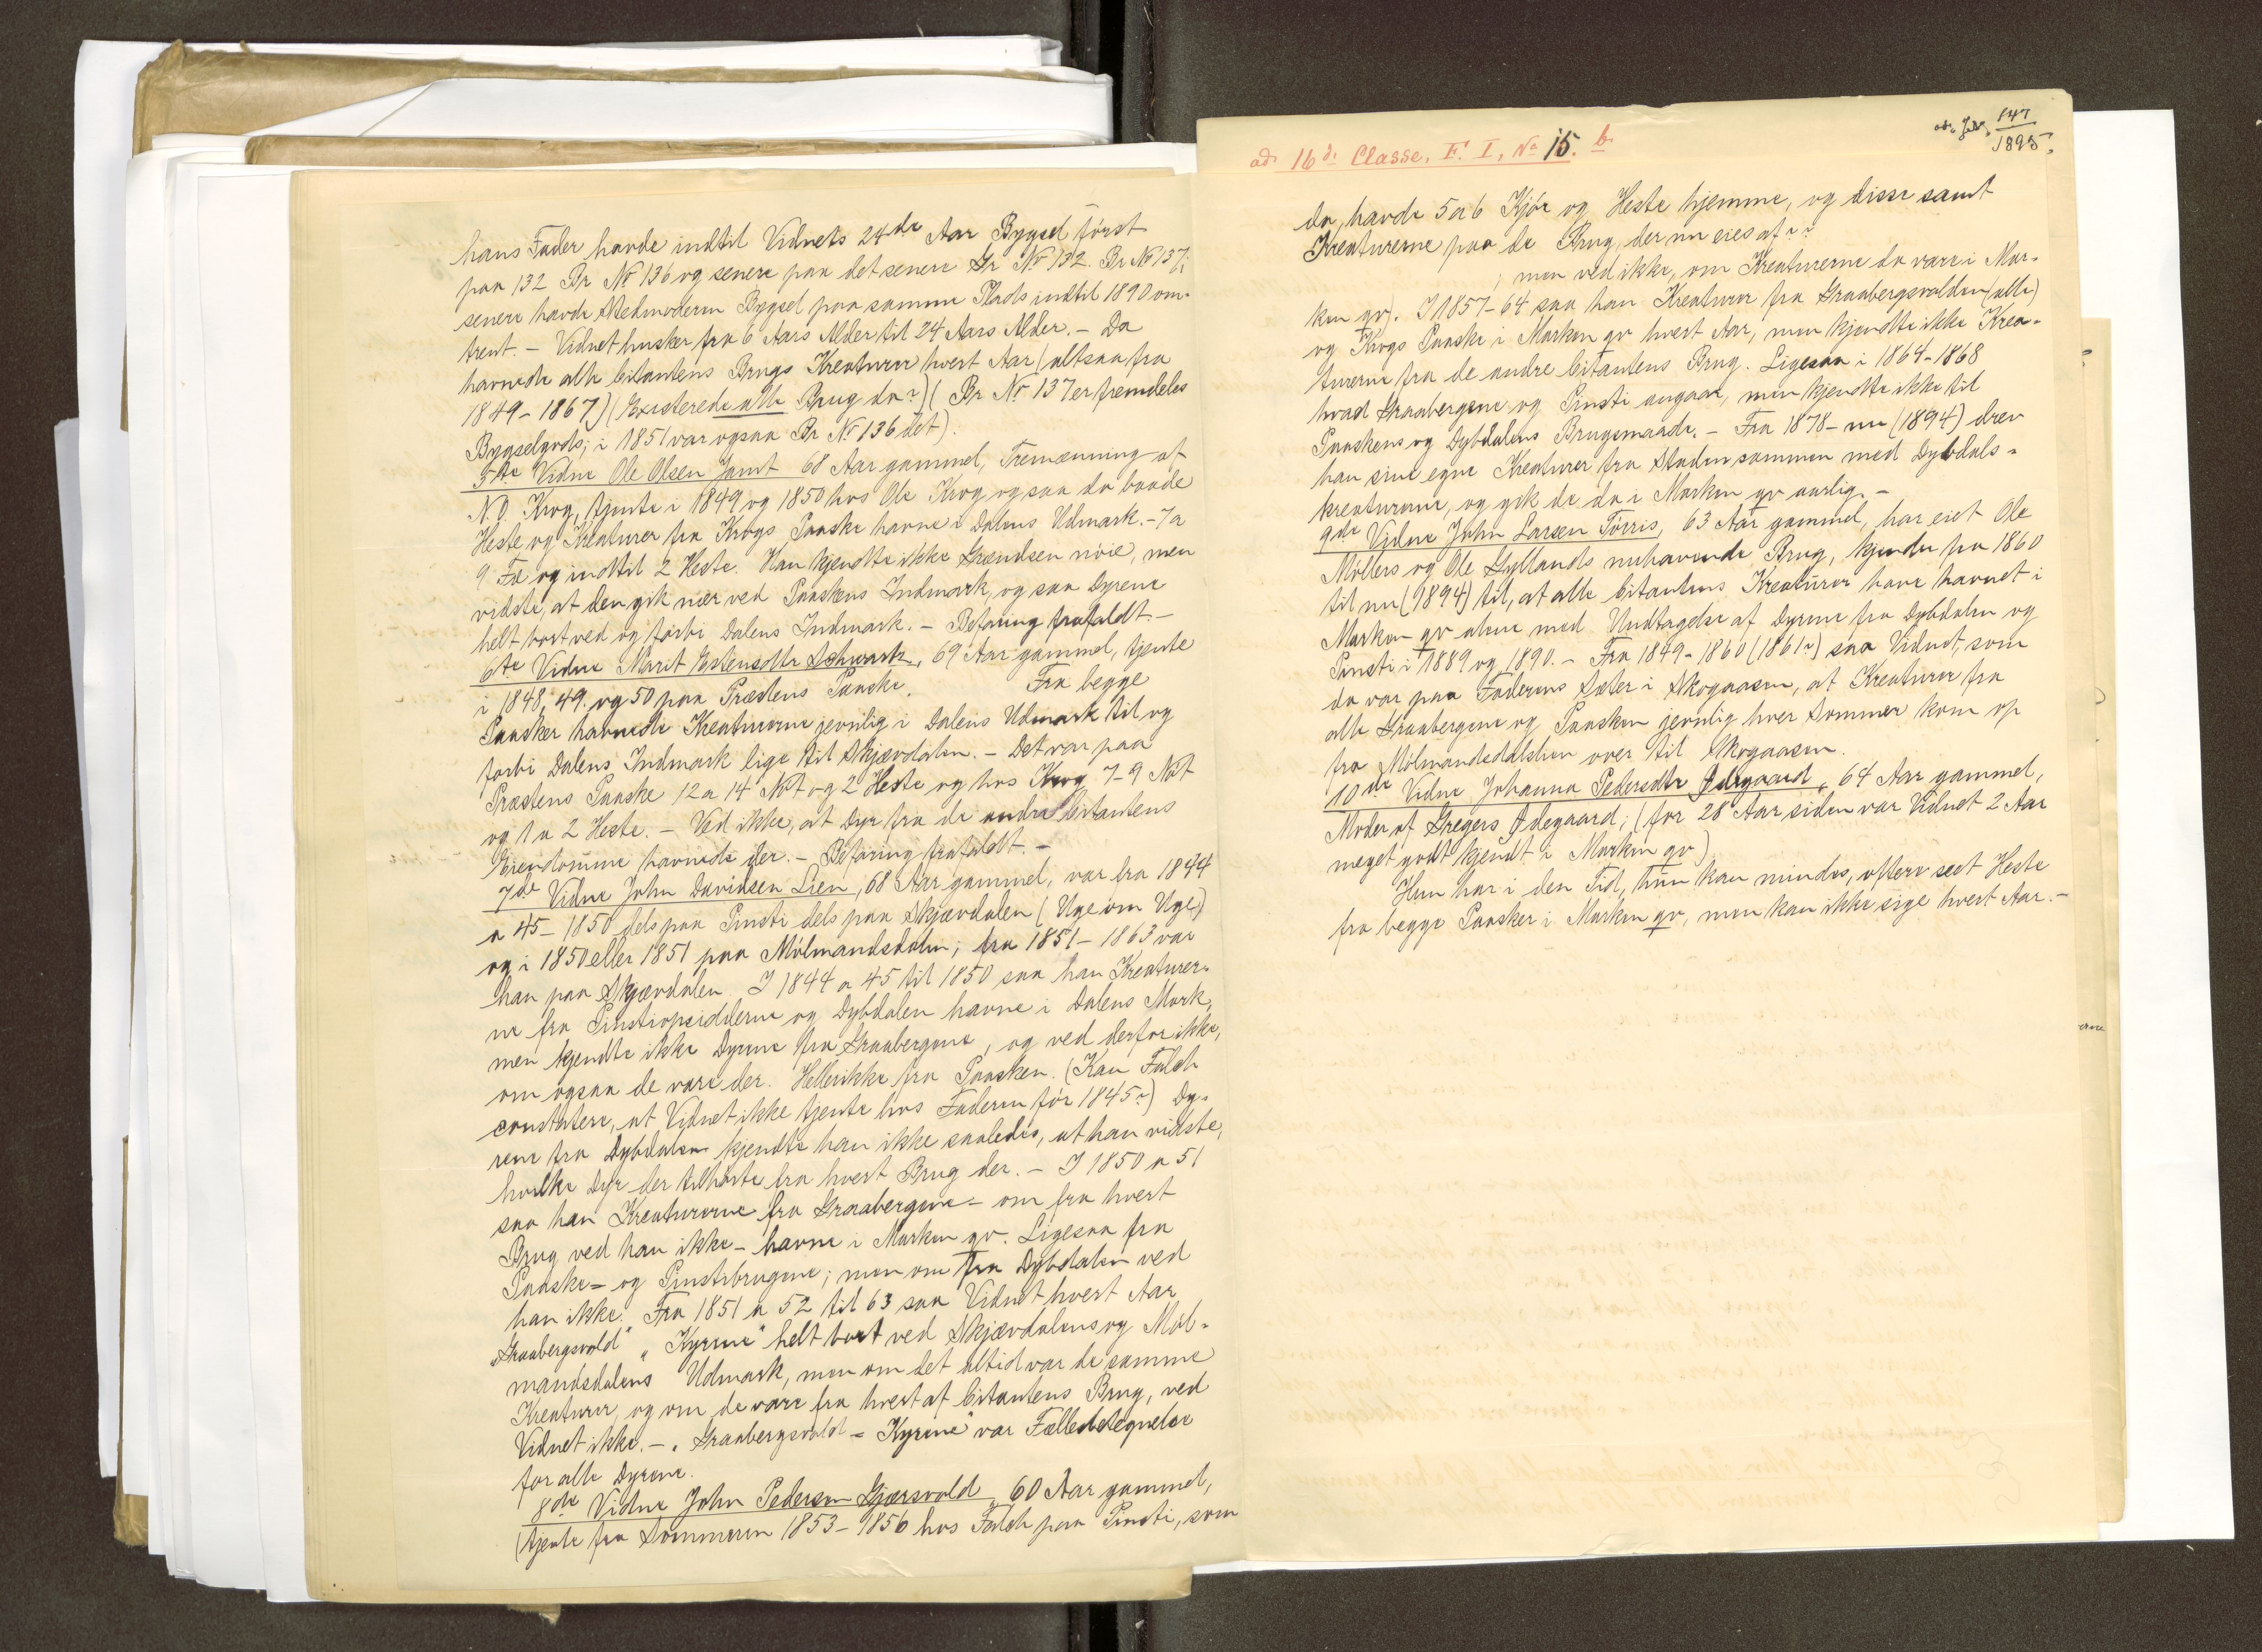 hans Fader havde indtil Vidnets 24de Aar Bygsel först
paa 132 Br No 136 og senere paa det senere Gr No 132. Br No 137;
senere havde Stedmoderen Bygsel paa samme Plads indtil 1890 om-
trent. - Vidnet husker fra 6 Aars Alder til 24 Aars Alder. - Da
havnede alle Citantens Brugs Kreaturer hvert Aar (altsaa fra
1849-1867) (Existerede alle Brug da?) (Br No 137 er fremdeles
Bygselgods; i 1851 var ogsaa Br No 136 det).
5te Vidne Ole Olsen Jamt 68 Aar gammel, Tremænning af
N. O. Krog, tjente i 1849 og 1850 hos Ole Krog og saa da baade
Heste og Kreaturer fra Krogs Paaske havne i Dalens Udmark. - 7 a
9 Fæ og indtil 2 Heste. Han kjendte ikke Grændsen nöie, men
vidste, at den gik nær ved Paaskens Indmark, og saa Dyrene
helt bort ved og forbi Dalens Indmark. - Befaring frafaldt. -
6te Vidne Marit Estensdtr Schwark, 69 Aar gammel, tjente
i 1848, 49. og 50 paa Præstens Paaske. Fra begge
Paasker havnede Kreaturerne jevnlig i Dalens Udmark til og
forbi Dalens Indmark lige til Skjævdalen. - Det var paa
Præstens Paaske 12 a 14 Nöt og 2 Heste og hos Krog 7-9 Nöt
og 1 a 2 Heste. - Ved ikke, at Dyr fra de andre Citantens
Eiendomme havnede der. - Befaring frafaldt. -
7de Vidne John Davidsen Lien, 68 Aar gammel, var fra 1844
a 45 - 1850 dels paa Pinsti dels paa Skjævdalen (Uge om Uge)
og i 1850 eller 1851 paa Mölmandsdalen; fra 1851-1863 var
han paa Skjævdalen. I 1844 a 45 til 1850 saa han Kreaturer-
ne fra Pinstiopsidderne og Dybdalen havne i Dalens Mark,
men kjendte ikke Dyrene fra Graabergene, og ved derfor ikke,
om ogsaa de vare der. Heller ikke fra Paasken. (Kan Falch
constatere, at Vidnet ikke tjente hos Faderen för 1845?) Dy-
rene fra Dybdalen kjendte han ikke saaledes, at han vidste,
hvilke Dyr der tilhörte fra hvert Brug der. - I 1850 a 51
saa han Kreaturerne fra Graabergene - om fra hvert
Brug ved han ikke - havne i Marken qv. Ligesaa fra
Paaske- og Pinstibrugene; men om fra Dybdalen ved
han ikke. Fra 1851 a 52 til 63 saa Vidnet hvert Aar
"Graabergsvold" "Kyrene" helt bort ved Skjævdalens og Möl-
mandsdalens Udmark, men om det altid var de samme
Kreaturer, og om de vare fra hvert af Citantens Brug, ved
Vidnet ikke. - "Graabergsvold - Kyrene" var Fællesbetegnelse
for alle Dyrene.
8de Vidne John Pedersen Gjærsvold, 60 Aar gammel,
(tjente fra Sommeren 1853-1856 hos Falch paa Pinsti, som
ad. 16de Classe, F. I, No 15. b.
ad. Jdr. 147/1895.
da havde 5 a 6 Kjör og Heste hjemme, og disse samt
Kreaturerne paa de Brug, der nu eies af ??
; men ved ikke, om Kreaturerne da vare i Mar-
ken qv). I 1857-64 saa han Kreaturer fra Graabergsvolden (alle)
og Krogs Paaske i Marken qv hvert Aar, men kjendte ikke Krea-
turerne fra de andre Citantens Brug. Ligesaa i 1864-1868
hvad Graabergene og Pinsti angaar, men kjendte ikke til
Paaskens og Dybdalens Brugsmaade. - Fra 1878 - nu (1894) drev
han sine egne Kreaturer fra Staden sammen med Dybdals-
kreaturene, og gik de da i Marken qv aarlig. -
9de Vidne John Larsen Törris, 63 Aar gammel, har eiet Ole
Möllers og Ole Gyllands nuhavende Brug, kjender fra 1860
til nu (1894) til, at alle Citantens Kreaturer have havnet i
Marken qv alene med Undtagelse af Dyrene fra Dybdalen og
Pinsti i 1889 og 1890. - Fra 1849-1860 (1861?) saa Vidnet, som
da var paa Faderens Sæter i Skogaasen, at Kreaturer fra
alle Graabergene og Paasken jevnlig hver Sommer kom op
fra Mölmandsdalslien over til Skogaasen.
10de Vidne Johanna Pedersdtr Ödegaard, 64 Aar gammel,
Moder af Gregers Ödegaard; (for 28 Aar siden var Vidnet 2 Aar
meget godt kjendt i Marken qv)
Hun har i den Tid, hun kan mindes, oftere seet Heste
fra begge Paasker i Marken qv, men kan ikke sige hvert Aar. -